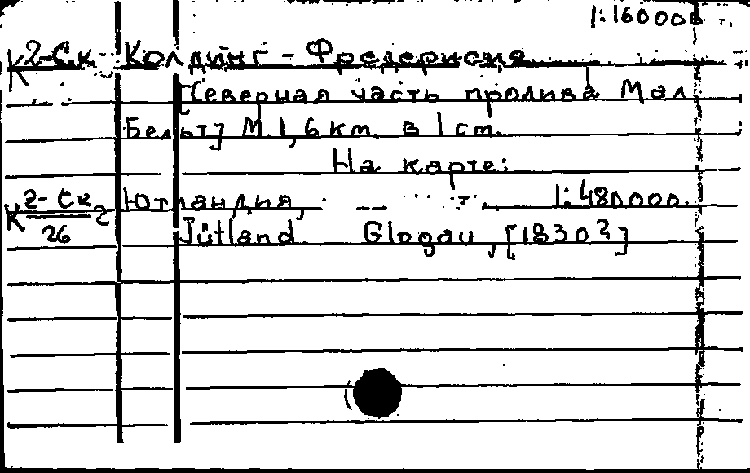 1:160000
К 2-Ск Колдинг - Фредерисия
[Северная часть пролива Мал.
Бельт] М. 1,6 km. в 1 cm.
На карте:
К 2-Ск 2 Ютландия, 1:480000.
26 Jütland. Glogau, [1830?]